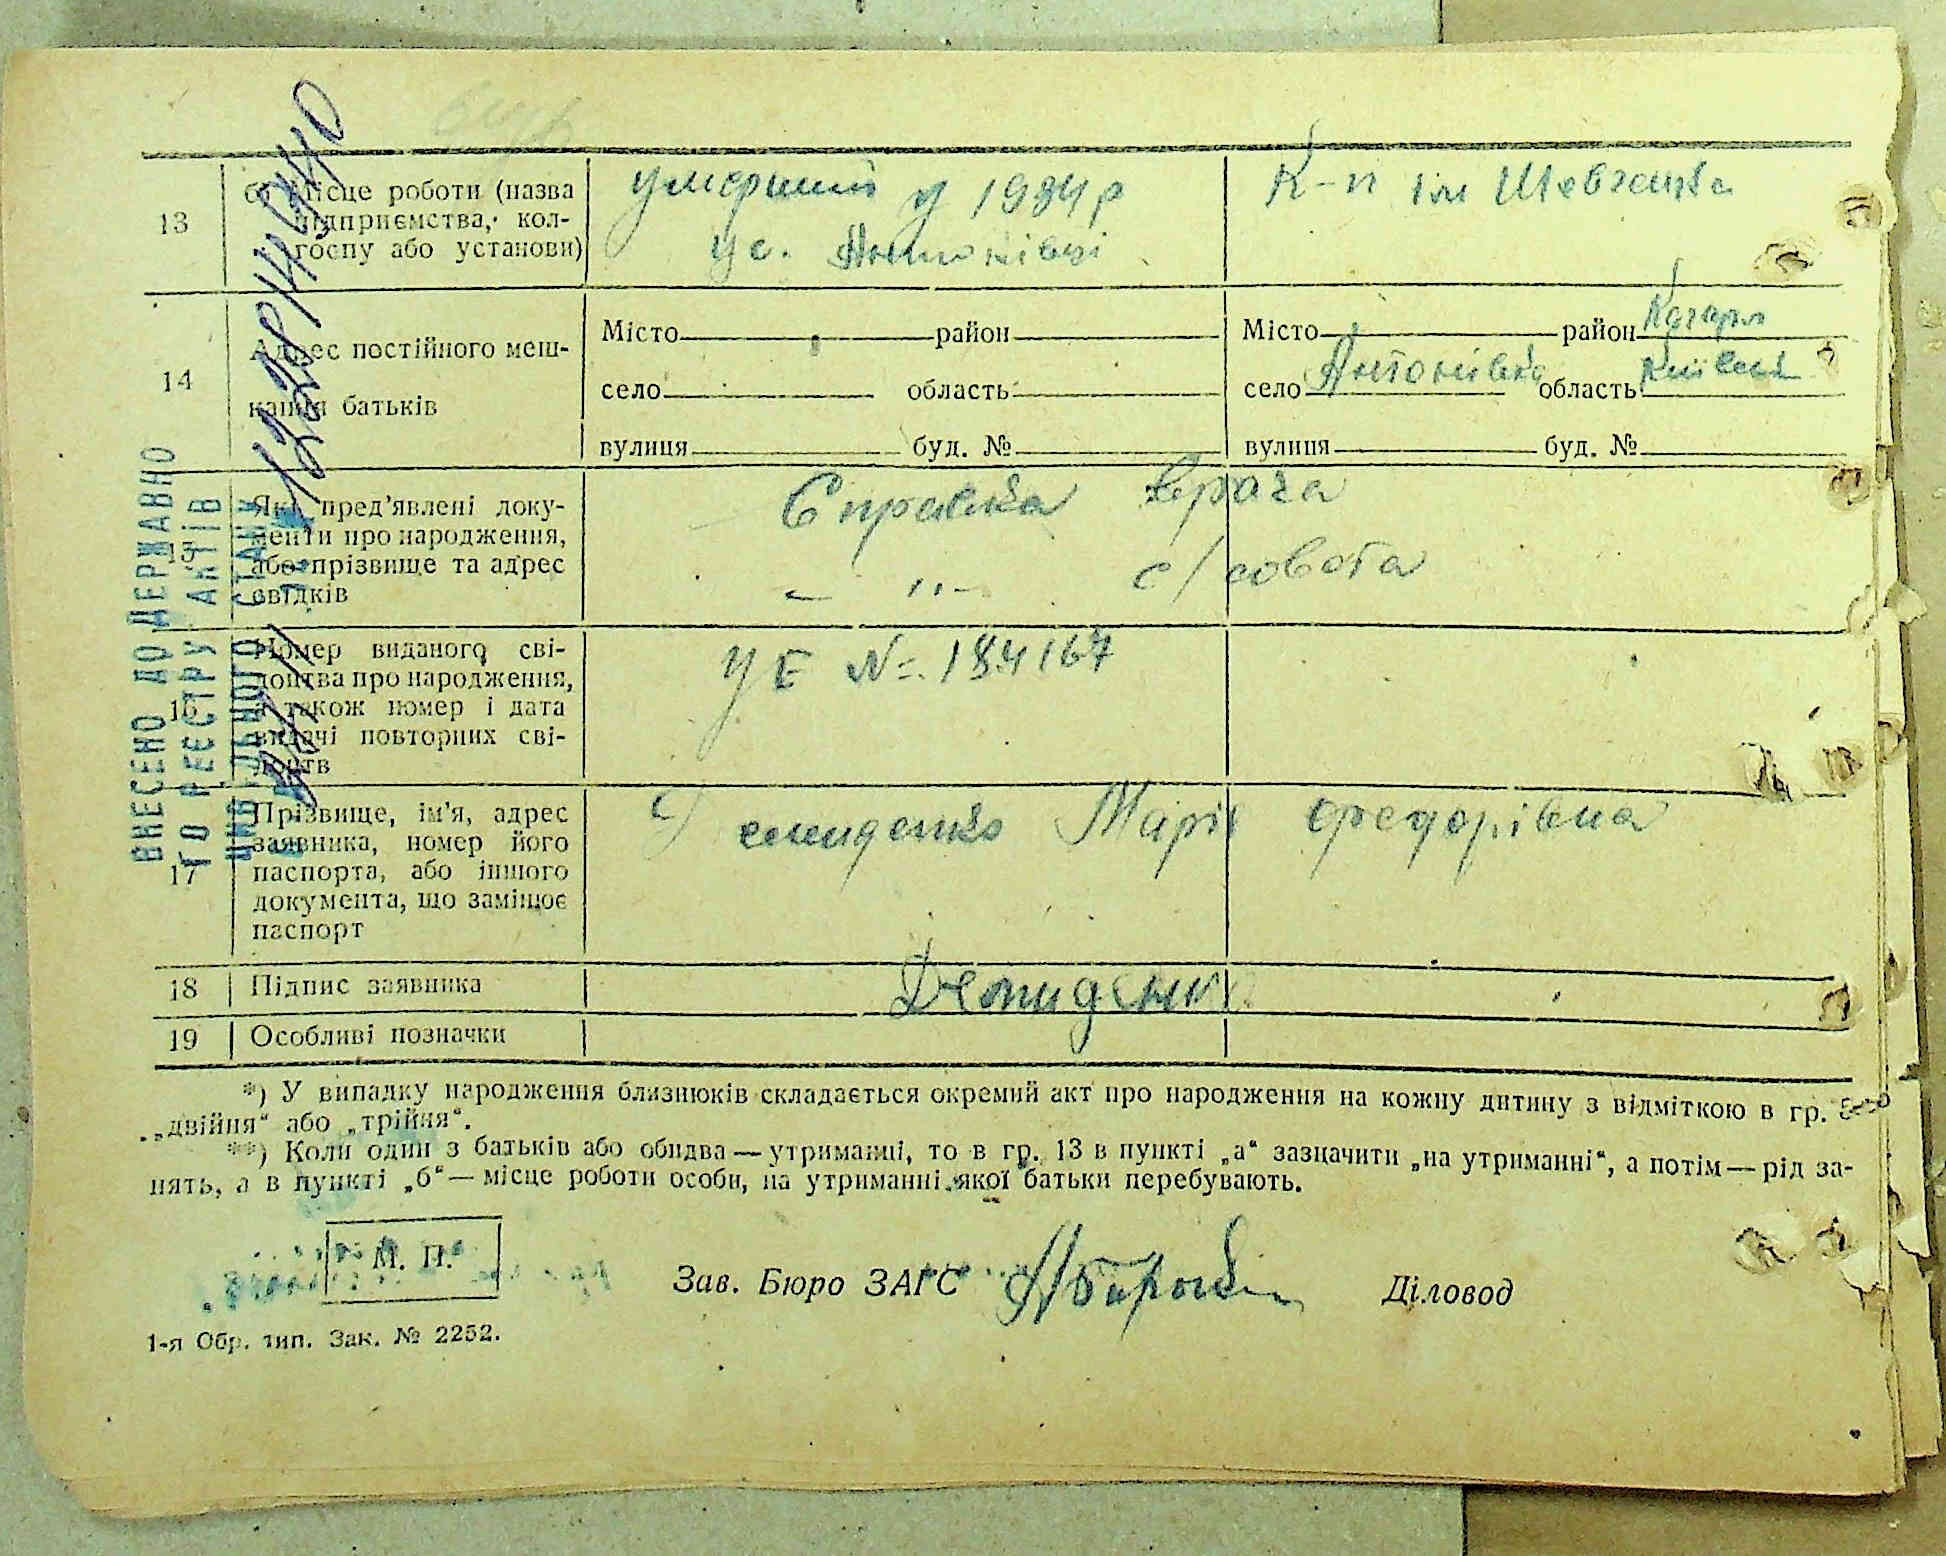 13
б) Місце роботи (назва
підприємства, кол-
госпу або установи)
умерший у 1934 р
у с. Антонівці
К-п ім Шевченка
14
Адрес постійного меш-
кання батьків
Місто район
село область
вулиця буд. №
Місто район Кагарл
село Антонівка область Київська
вулиця буд. №
15
Які пред’явлені доку-
менти про народження,
або прізвище та адрес
свідків
Справка врача
– „ – с/совета
16
Номер виданого сві-
доцтва про народження,
а також номер і дата
видачі повторних сві-
доцтв
УЕ № 184167
17
Прізвище, ім’я, адрес
заявника, номер його
паспорта, або іншого
документа, що заміщює
паспорт
Демиденко Марія Федорівна
18
Підпис заявника
Демиденк
19
Особливі позначки
ВНЕСЕНО ДО ДЕРЖАВНО
ГО РЕЄСТРУ АКТІВ
ЦИВІЛЬНОГО СТАНУ
*) У випадку народження близнюків складається окремий акт про народження на кожну дитину з відміткою в гр. 3—
„двійня“ або „трійня“.
**) Коли один з батьків або обидва — утриманці, то в гр. 13 в пункті „а“ зазначити „на утриманні“, а потім — рід за-
нять, а в пункті „б“ — місце роботи особи, на утриманні якої батьки перебувають.
М. П.
Зав. Бюро ЗАГС
Діловод
1-я Обр. тип. Зак. № 2252.